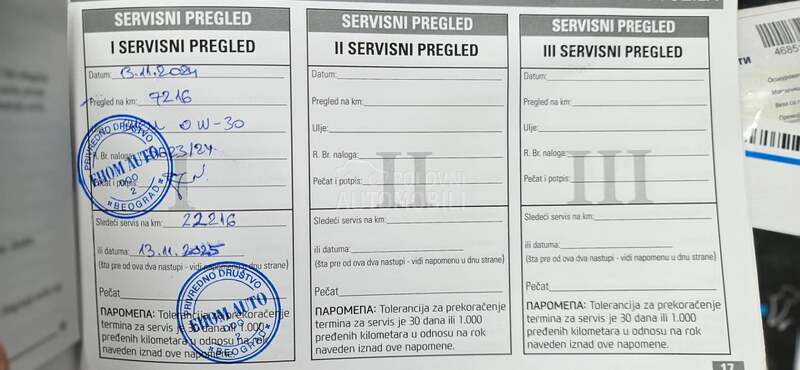 SERVISNI PREGLED
I SERVISNI PREGLED
Datum: 13.11.2024
Pregled na km: 7216
0W-30
R. Br. naloga: 1623/24
Pečat i potpis:
I
Sledeći servis na km: 22216
ili datuma: 13.11.2025
(šta pre od ova dva nastupi - vidi napomenu u dnu strane)
Pečat
NAPOMEПA: Tolerancija za prekoračenje
termina za servis je 30 dana ili 1.000
pređenih kilometara u odnosu na rok
naveden iznad ove napomene.
PRIVREDNO DRUŠTVO
EHOM AUTO
DOO
2
BEOGRAD
PRIVREDNO DRUŠTVO
EHOM AUTO
DOO
2
BEOGRAD
SERVISNI PREGLED
II SERVISNI PREGLED
Datum:
Pregled na km:
Ulje:
R. Br. naloga:
Pečat i potpis:
II
POLOVNI
AUTOMOBILI
Sledeći servis na km:
ili datuma:
(šta pre od ova dva nastupi - vidi napomenu u dnu strane)
Pečat
ПAPOMEПA: Tolerancija za prekoračenje
termina za servis je 30 dana ili 1.000
pređenih kilometara u odnosu na rok
naveden iznad ove napomene.
SERVISNI PREGLED
III SERVISNI PREGLED
Datum:
Pregled na km:
Ulje:
R. Br. naloga:
Pečat i potpis:
III
Sledeći servis na km:
ili datuma:
(šta pre od ova dva nastupi - vidi napomenu u dnu strane)
Pečat
ПAPOMEПA: Tolerancija za prekoračenje
termina za servis je 30 dana ili 1.000
pređenih kilometara u odnosu na rok
naveden iznad ove napomene.
17